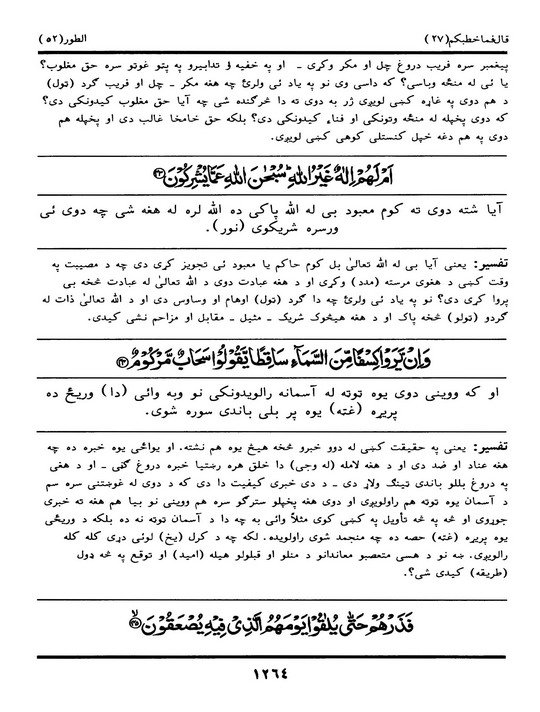 قال فما خطبکم (۲۷) الطور (۵۲)
پیغمبر سره فریب دروغ چل او مکر وکړی ـ او په خفیه ؤ تدابیرو په پتو غوتو سره حق مغلوب؟
یا ئی له منځه وباسی؟ که داسی وی نو په یاد ئی ولرئ چه هغه مکر ـ چل او فریب گرد (ټول)
د هم دوی په غاړه کښی لویږی ژر به دوی ته دا څرگنده شی چه آیا حق مغلوب کیدونکی دی؟
که دوی پخپله له منځه وتونکی او فناء کیدونکی دی؟ بلکه حق خامخا غالب دی او پخپله هم
دوی په هم دغه خپل کنستلی کوهی کښی لویږی.
اَمْ لَهُمْ اِلٰهٌ غَيْرُ اللهِ سُبْحٰنَ اللهِ عَمَّا يُشْرِكُوْنَ ۝۴۳
آیا شته دوی ته کوم معبود بی له الله پاکی ده الله لره له هغه شی چه دوی ئی
ورسره شریکوی (نور).
تفسیر: یعنی آیا بی له الله تعالیٰ بل کوم حاکم یا معبود ئی تجویز کړی دی چه د مصیبت په
وقت کښی د هغوی مرسته (مدد) وکړی او د هغه عبادت دوی د الله تعالیٰ له عبادت څخه بی
پروا کړی دی؟ نو په یاد ئی ولرئ چه دا گرد (ټول) اوهام او وساوس دی او د الله تعالیٰ ذات له
گردو (ټولو) څخه پاک او د هغه هیڅوک شریک ـ مثیل ـ مقابل او مزاحم نشی کیدی.
وَاِنْ يَّرَوْا كِسْفًا مِّنَ السَّمَآءِ سَاقِطًا يَّقُوْلُوْا سَحَابٌ مَّرْكُوْمٌ ۝۴۴
او که ووینی دوی یوه ټوټه له آسمانه رالویدونکی نو وبه وائی (دا) وریځ ده
پریړه (غټه) یوه پر بلی باندی سوره شوی.
تفسیر: یعنی په حقیقت کښی له دوو خبرو څخه هیڅ یوه هم نشته. او یوائی یوه خبره ده چه
هغه عناد او ضد دی او د هغه لامله (له وجی) دا خلق هره رښتیا خبره دروغ گڼی ـ او د هغی
په دروغ بللو باندی ټینگ ولاړ دی ـ د دی خبری کیفیت دا دی که د دوی له غوښتنی سره سم
د آسمان یوه ټوټه هم راولویږی او دوی هغه پخپلو سترگو سره هم ووینی نو بیا هم هغه ته خبری
جوړوی او څه په څه تأویل په کښی کوی مثلاً وائی به چه دا د آسمان ټوټه نه ده بلکه د وریځی
یوه پریړه (غټه) حصه ده چه منجمد شوی راولویده. لکه چه د کرل (یخ) لوئی دړی کله کله
رالویږی. ښه نو د هسی متعصبو معاندانو د منلو او قبلولو هیله (امید) او توقع په څه ډول
(طریقه) کیدی شی؟.
فَذَرْهُمْ حَتّٰى يُلٰقُوْا يَوْمَهُمُ الَّذِىْ فِيْهِ يُصْعَقُوْنَ ۝۴۵
۱۲۶۴